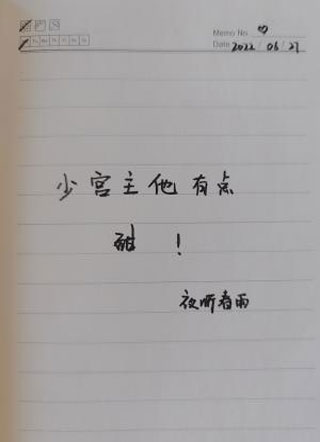 Memo No. ♡
Date 2022 / 06 / 27
少宫主他有点
甜 !
夜听春雨